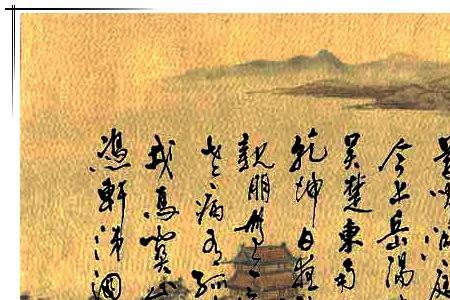 昔聞洞庭
今上岳陽
吳楚東南
乾坤日夜
親朋無一
老病有孤
戎馬關山
憑軒涕泗